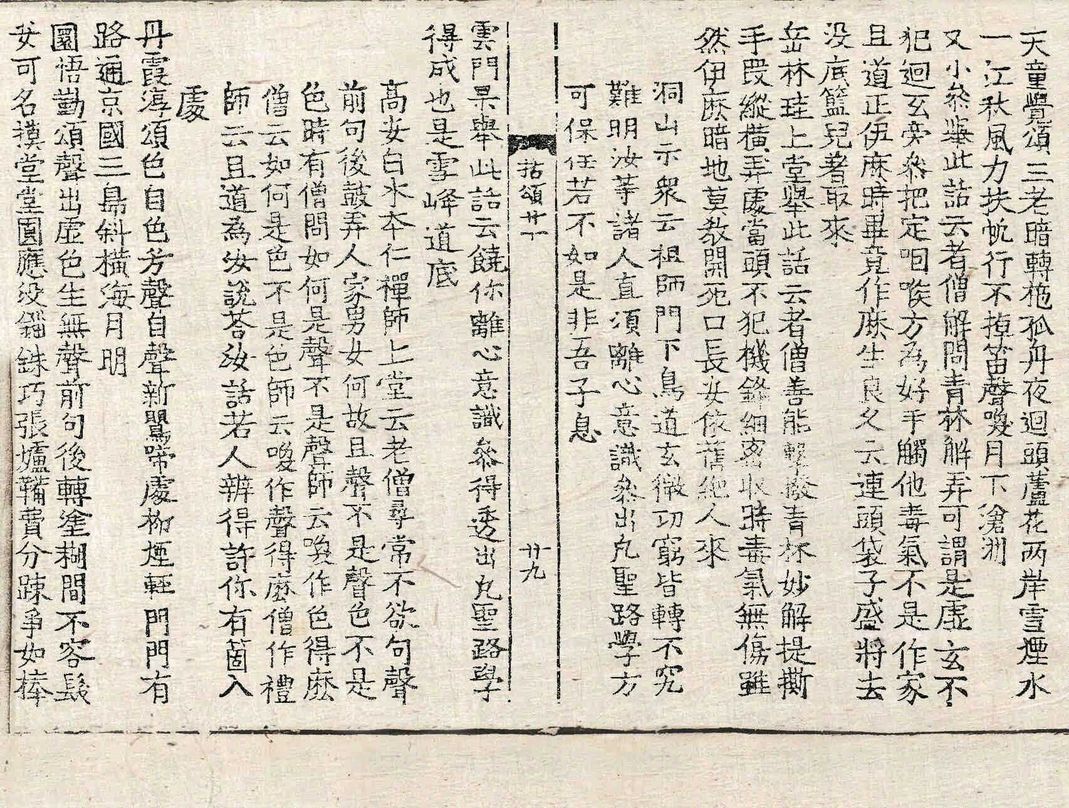 天童覺頌三老暗轉柂孤舟夜迴頭蘆花两岸雪煙水
一江秋風力扶帆行不掉笛聲喚月下滄洲
又小叅舉此話云者僧解問青林解弄可謂是虛玄不
犯迴玄旁叅把定咽喉方為好手觸他毒氣不是作家
且道正伊麽時畢竟作麽生良久云連頭袋子盛將去
没底籃兒著取來
岳林珪上堂舉此話云者僧善能擊撥青林妙解提撕
手段縱橫弄䖏當頭不犯機鋒細密取時毒氣無傷雖
然伊麽暗地莫教開死口長安依舊絶人來
洞山示衆云祖師門下鳥道玄微功窮皆轉不究
難明汝等諸人直須離心意識叅出凢聖路學方
可保任若不如是非吾子息
拈頌卄十
卄九
雲門杲舉此話云饒你離心意識叅得透出凢聖路學
得成也是雪峰道底
高安白水本仁禪師上堂云老僧尋常不欲句聲
前句後鼓弄人家男女何故且聲不是聲色不是
色時有僧問如何是聲不是聲師云喚作色得麽
僧云如何是色不是色師云喚作聲得麽僧作禮
師云且道為汝說荅汝話若人辨得許你有箇入
䖏
丹霞淳頌色自色兮聲自聲新鸎啼䖏柳煙輕門門有
路通京國三島斜橫海月明
圜悟勤頌聲出虛色生無聲前句後轉塗糊間不容髮
安可名摸堂堂圎應没錙銖巧張爐鞴費分踈爭如棒